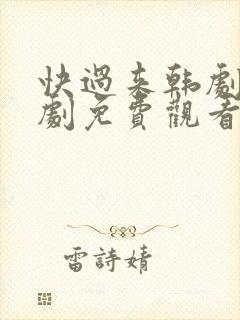 快過來韓劇
劇免費觀看
雷詩婧